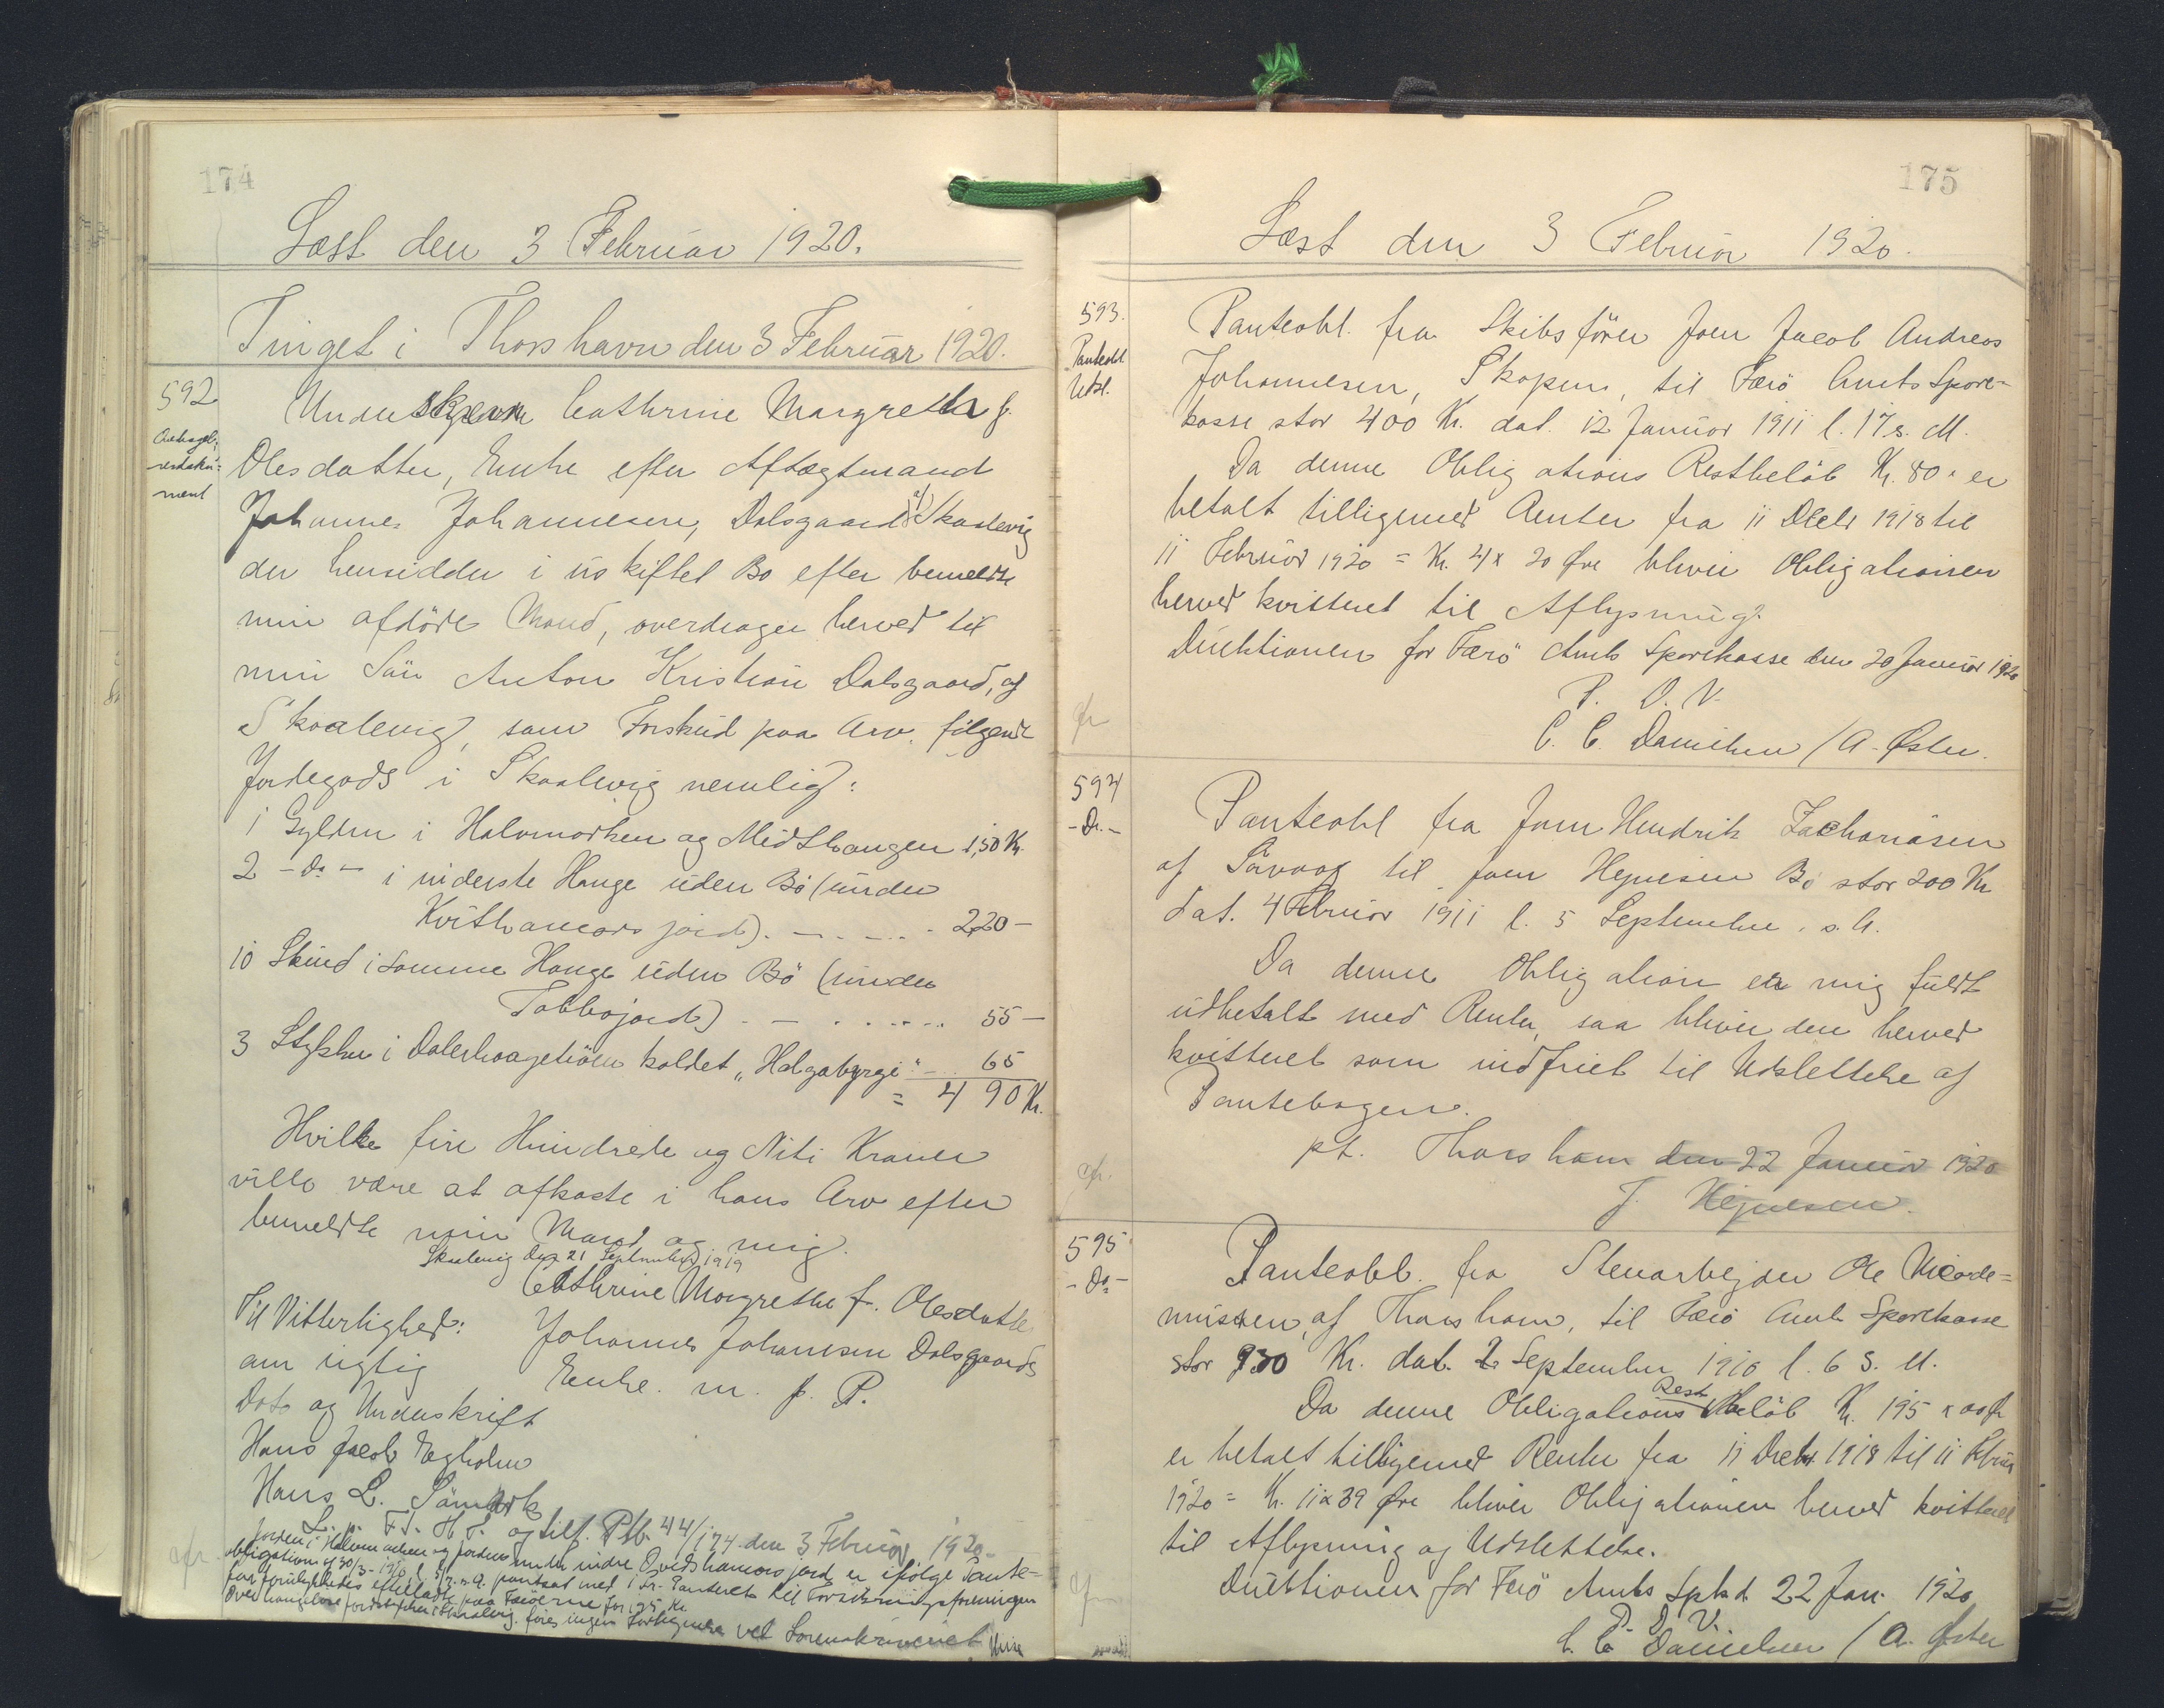 174
Læst den 3 Februar 1920.
Tinget i Thorshavn den 3 Februar 1920.
592
Undertegnede Cathrine Margrethe f.
Olesdatter, Enke efter Aftægtsmand
Johannes Johannesen, Dalsgaard i Skaalevig
der hensidder i uskiftet Bo efter bemeldte
min afdöde Mand, overdrager herved til
min Sön Anton Kristian Dalsgaard, af
Skaalevig, som Forskud paa Arv, fölgende
Jordegods i Skaalevig nemlig:
1 Gylden i Halvmarken og Midthaugen 150 Kr.
2 - Do - i inderste Hauge uden Bö (under
Kvithamars jord). - - - - - 220 -
10 Skind i samme Hauge uden Bö (under
Tobbajord) - - . . . . . . 55 -
3 Stykker i kaldet "Halgabyrgi" - 65
= 490 Kr.
Hvilke fire Hundrede og Niti Kroner
ville være at afkorte i hans Arv efter
bemeldte min Mand og mig.
Skaalevig den 21 September 1919
Cathrine Margrethe f. Olesdatter
Til Vitterlighed:
Johannes Johannesen Dalsgaards
om rigtig
Enke. m. f. P.
Dato og Underskrift
Hans Jacob Egholm
Hans L.
L. p. F. T. H. T. og tilf. Ptb. 44/174 den 3 Februar 1920.
Jorden i Halvmarken og jorden under indre Qvidshamars jord er ifölge Pante-
obligation af 30/3 - pantsat med 1ste Pri. Panteret til Forsikringsforeningen
for forulykkedes efterladte paa Færöerne for 175 Kr
Over i Skaalevig föres ingen Fortegnelse ved Sorenskriveriet
175
Læst den 3 Februar 1920.
593.
Panteobl
Udsl.
Panteobl. fra Skibsförer Joen Jacob Andreas
Johannesen, Skopun, til Færö Amts Spare-
kasse stor 400 Kr. dat. 12 Januar 1911 l. 17 s. M.
Da denne Obligations Restbelöb Kr. 80 " er
betalt tilligemed Renter fra 11 Decbr 1918 til
11 Februar 1920 = Kr. 4 x 20 Øre bliver Obligationen
herved kvitteret til Aflysning.
Direktionen for Færö Amts Sparekasse den 20 Januar 1920
P. D. V.
C. C. Danielsen / A. Øster.
594
- Do. -
Panteobl fra Joen Hendrik Zachariasen
af Sørvaag til Joen Hejnesen Bö stor 200 Kr
dat. 4 Februar 1911 l. 5 September s. A.
Da denne Obligation er mig fuldt
udbetalt med Renter, saa bliver den herved
kvitteret som indfriet til Udslettelse af
Pantebogen.
pt. Thorshavn den 22 Januar 1920
J. Hejnesen.
595
- Do -
Panteobl. fra Stenarbejder Ole Nicode-
mussen, af Thorshavn, til Færö Amts Sparekasse
stor 930 Kr. dat. 2 September 1910 l. 6 s. M.
Da denne Obligations Rest Belöb Kr. 195 x 00 Ør
er betalt tilligemed Renter fra 11 Decbr 1918 til 11 Februar
1920 = Kr. 11 x 39 Øre bliver Obligationen herved kvitteret
til Aflysning og Udslettelse.
Direktionen for Færö Amts Spk d. 22 Jan. 1920
P. D. V.
C. C. Danielsen / A. Øster